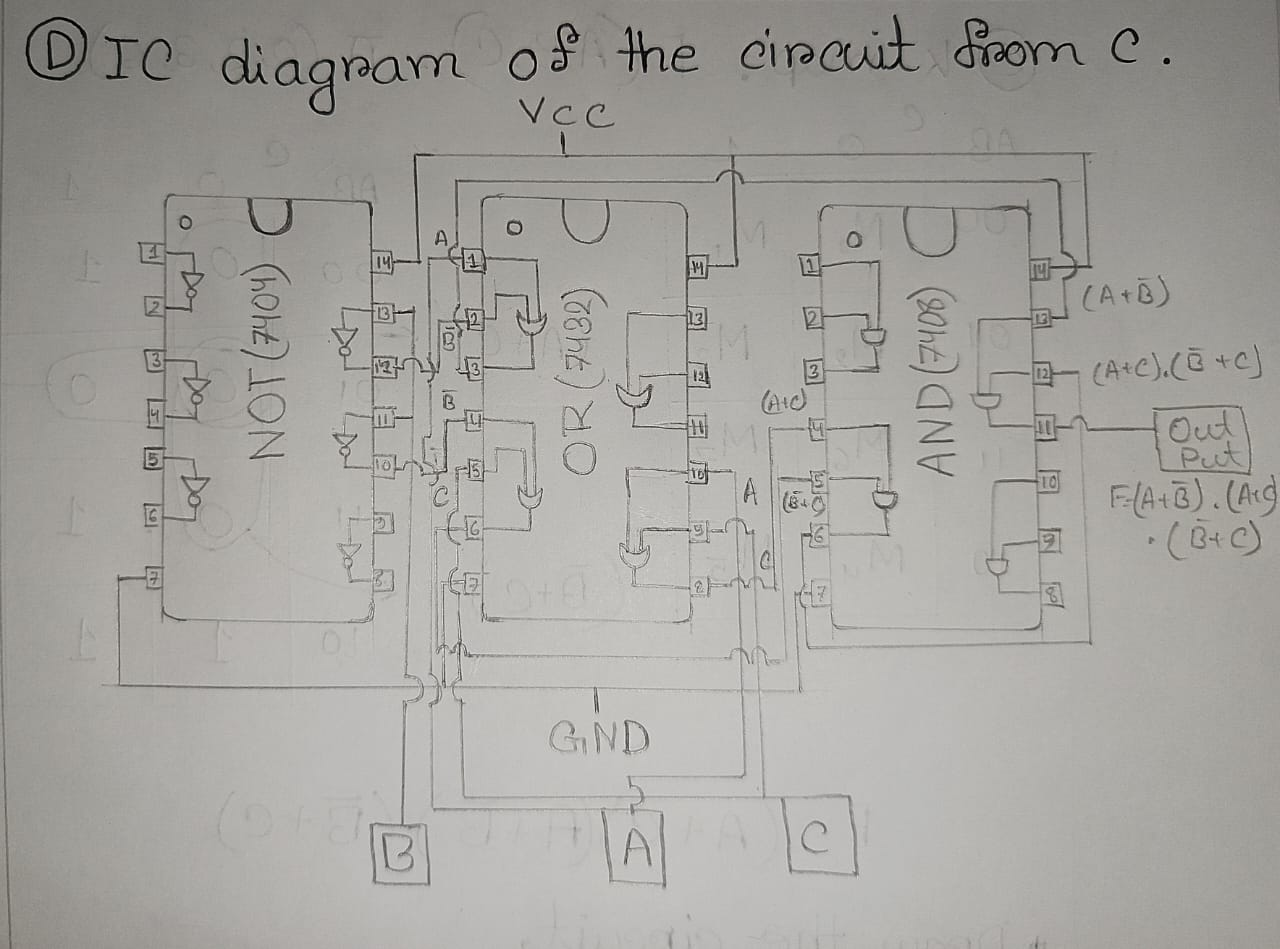 D IC diagram of the circuit from C.
VCC
NOT (7404)
1
2
3
4
5
6
7
14
13
12
11
10
9
8
A
B̄
B̄
C
OR (7432)
1
2
3
4
5
6
7
14
13
12
11
10
9
8
A
C
(A+C)
(B̄+C)
AND (7408)
1
2
3
4
5
6
7
14
13
12
11
10
9
8
(A+B̄)
(A+C).(B̄+C)
Out
Put
F=(A+B̄).(A+C)
.(B̄+C)
GND
B
A
C